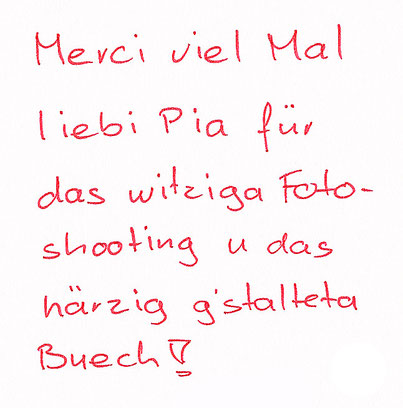 Merci viel Mal
liebi Pia für
das witziga Foto-
shooting u das
härzig g'stalteta
Buech!